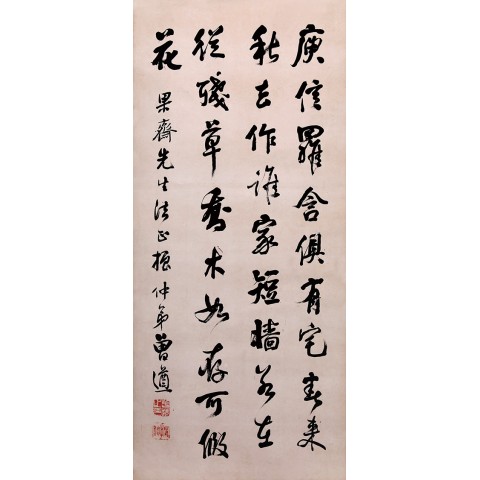 庾信羅含俱有宅春来
秋去作誰家短墻若在
從殘草喬木如存可假
花
果齋先生法正振仲弟曾遒